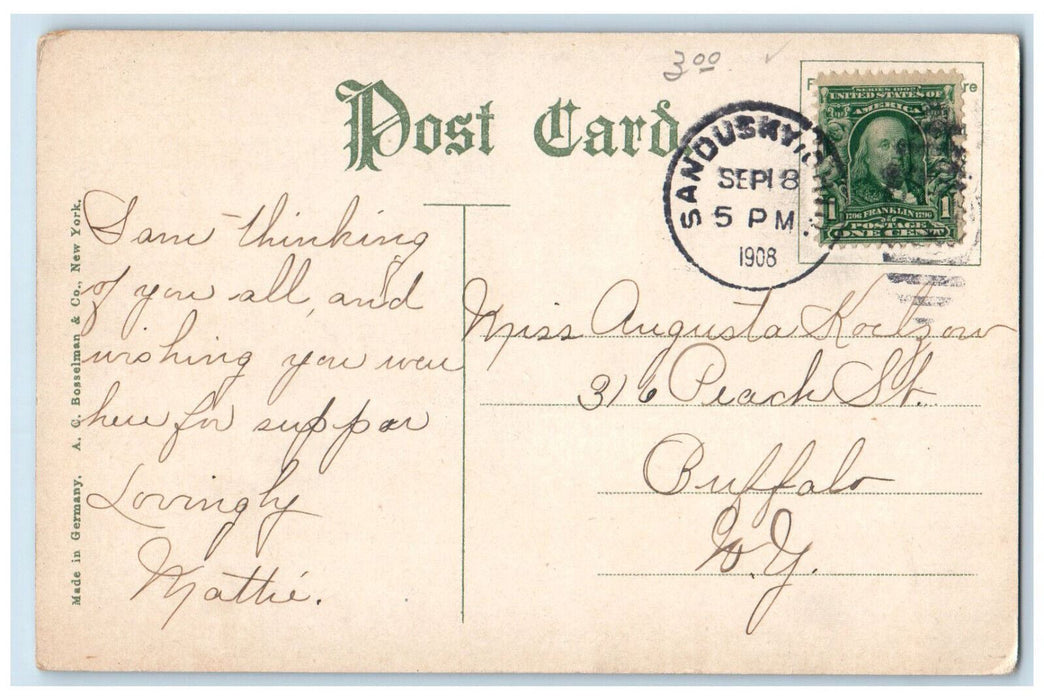 3 00
Post Card
SERIES 1902
UNITED STATES OF
AMERICA
1706 FRANKLIN 1790
1 1
POSTAGE
ONE CENT
SANDUSKY, OHIO
SEP 18
5 PM
1908
I am thinking
of you all, and
wishing you were
here for suppar
Lovingly
Mattie.
Miss Augusta Koelzow
316 Peach St.
Buffalo
N.Y.
Made in Germany. A. C. Bosselman & Co., New York.